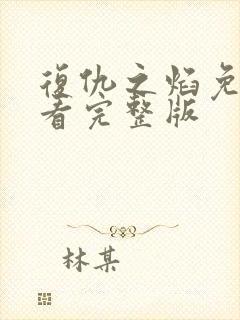 復仇之焰免
看完整版
林某